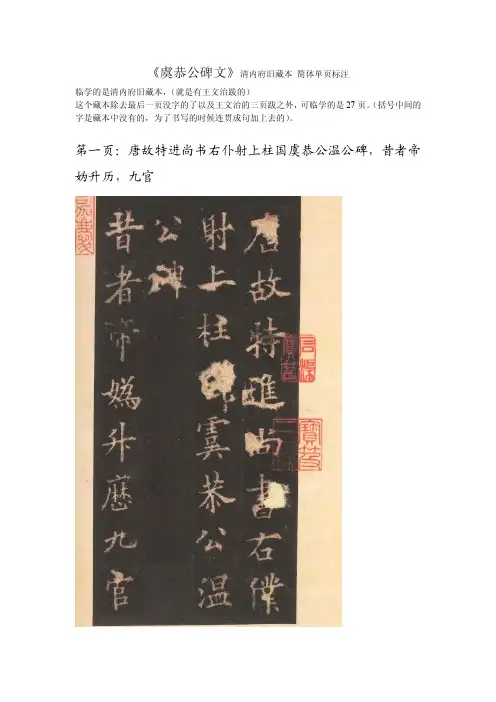 《虞恭公碑文》清内府旧藏本 简体单页标注
临学的是清内府旧藏本，（就是有王文治跋的）
这个藏本除去最后一页没字的了以及王文治的三页跋之外，可临学的是27页。（括号中间的
字是藏本中没有的，为了书写的时候连贯成句加上去的）。
第一页：唐故特进尚书右仆射上柱国虞恭公温公碑，昔者帝
妫升历，九官
唐故特進尚書右僕
射上柱國虞恭公温
公碑
昔者帝嬀升歷九官